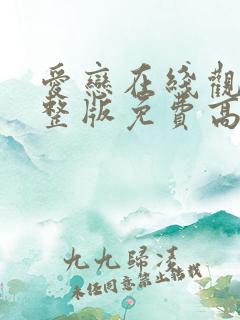 愛戀在綫觀
整版免費高
九九歸凌
未經同意禁止轉載